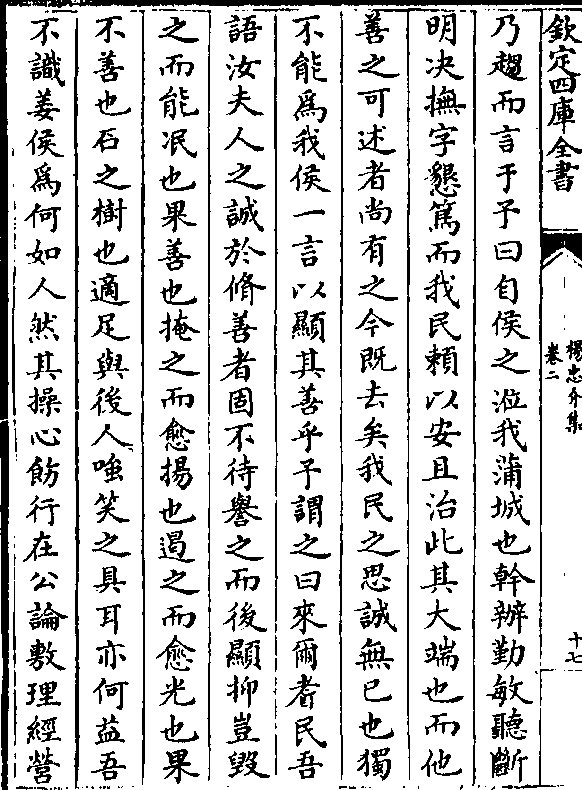 欽定四庫全書
楊忠介集
卷二
十七
乃趨而言于予曰自侯之涖我蒲城也幹辦勤敏聽斷
明决撫字懇篤而我民賴以安且治此其大端也而他
善之可述者尚有之今既去矣我民之思誠無已也獨
不能為我侯一言以顯其善乎予謂之曰來爾耆民吾
語汝夫人之誠於脩善者固不待譽之而後顯抑豈毀
之而能泯也果善也掩之而愈揚也遏之而愈光也果
不善也石之樹也適足與後人嗤笑之具耳亦何益吾
不識姜侯為何如人然其操心飭行在公論敷理經營